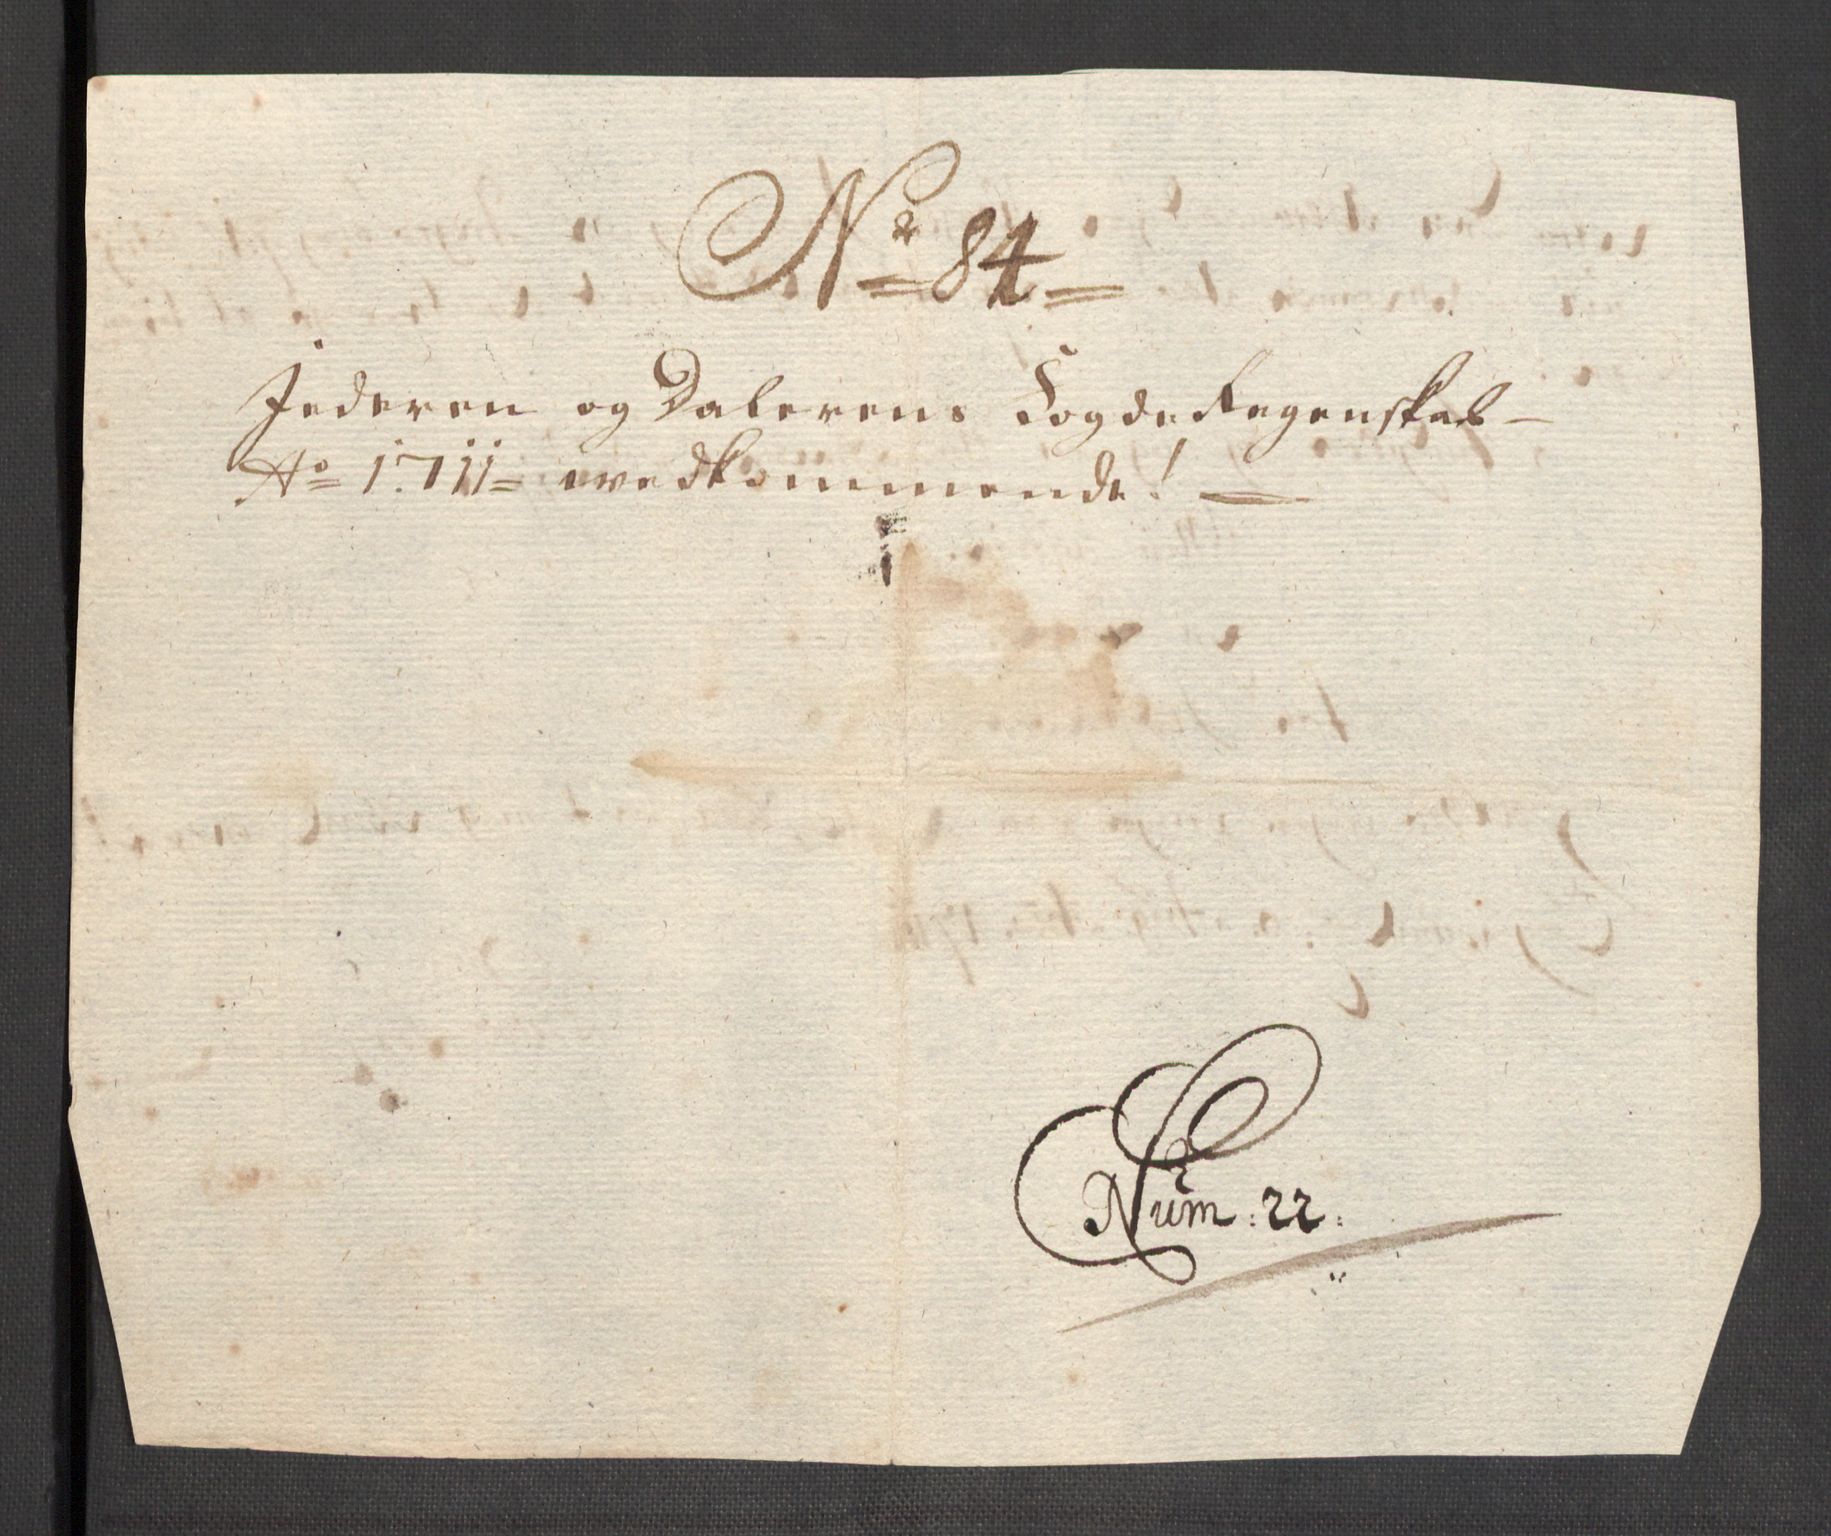 Nr 84
Jederen og Dalerens Fogde Regenskab
Ao 1711 wedkommende!
Num: 22: